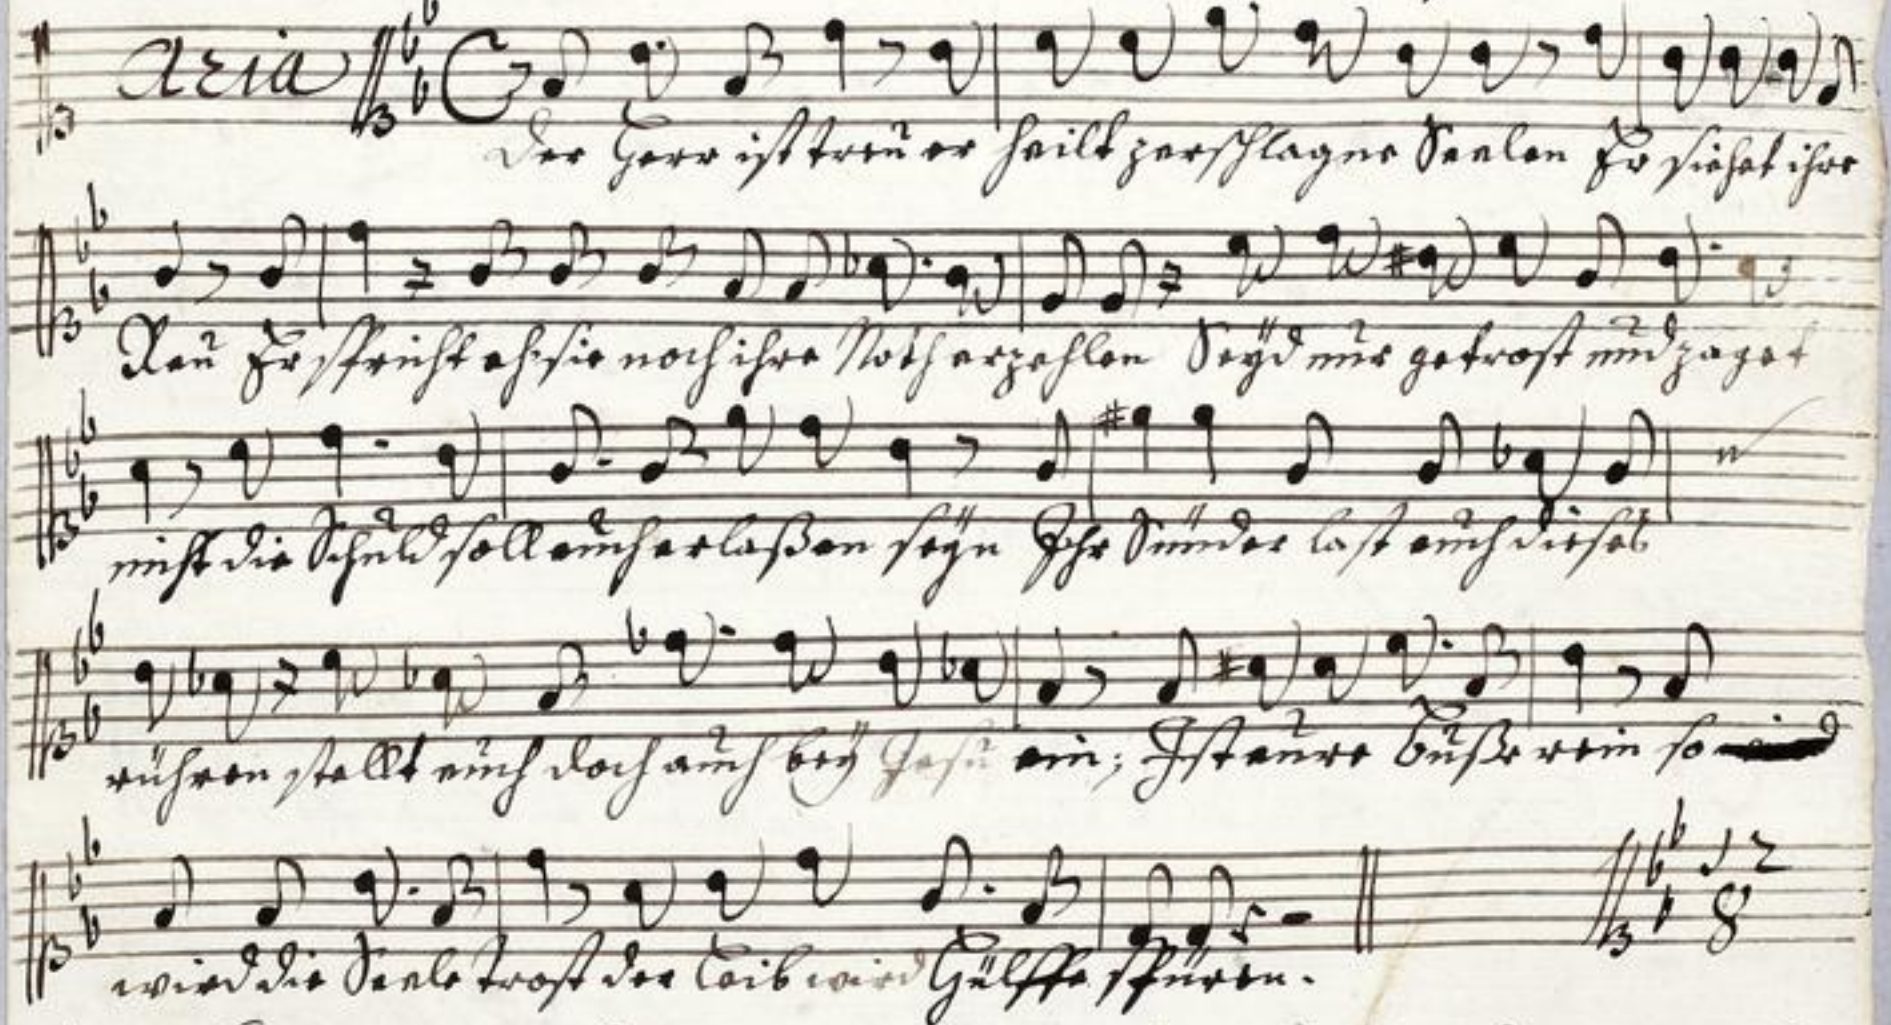 Aria
Der Herr ist treu er heilt zerschlagne Seelen Er siehet ihre
Reu Er spricht eh sie noch ihre Noth erzehlen Seyd nur getrost und zaget
nicht die Schuld soll euch erlaßen seyn Ihr Sünder last euch dieses
rühren stellt euch doch auch bey Jesu ein; Ist eure Buße rein so
12
8
wird die Seele trost der Leib wird Hülffe spüren.